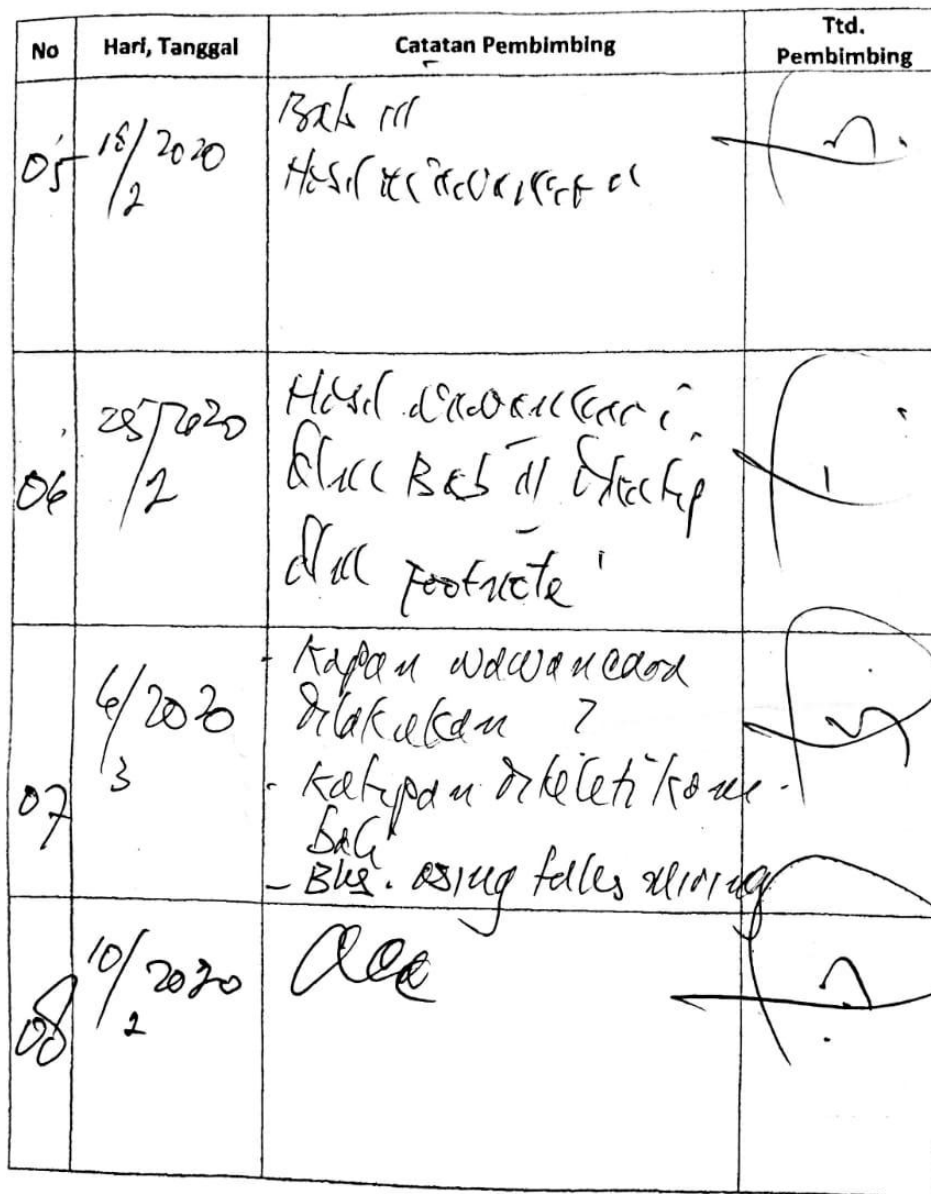 No Hari, Tanggal Catatan Pembimbing Ttd. Pembimbing
05 18/2 2020 Bab III
Hasil wawancara
06 25/2 2020 Hasil wawancara
Bab III
footnote
07 6/3 2020 - Kapan wawancara
dilakukan ?
- Kutipan diteliti kem-
bali
- Bhs. asing tulis miring
08 10/2 2020 acc